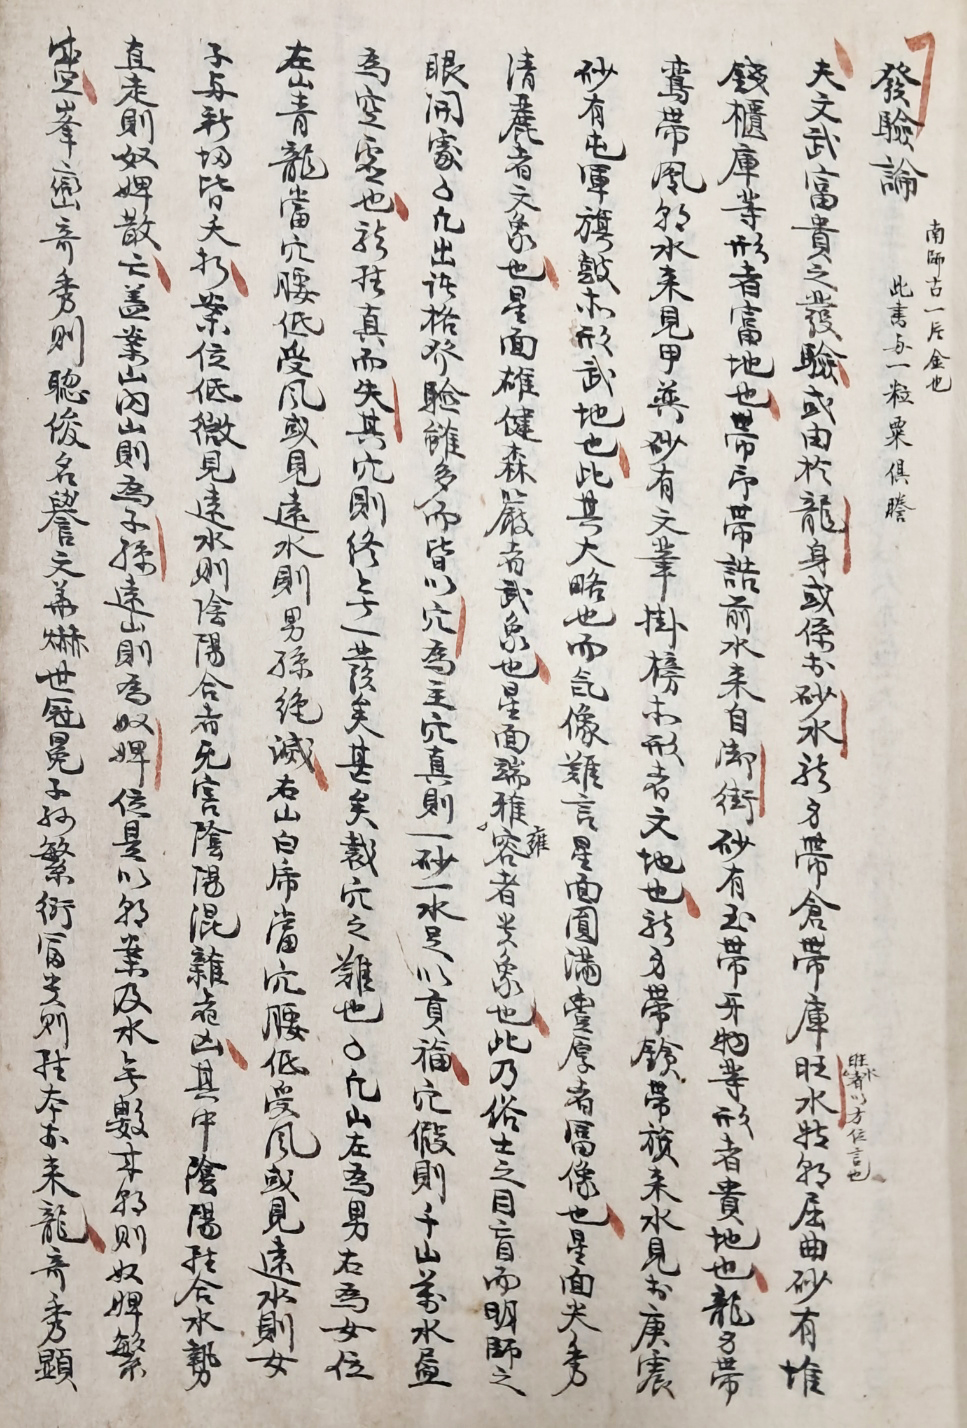 發驗論
南師古一片金也
此書与一粒粟俱謄
夫文武富貴之發驗或由於龍身或係于砂水龍身帶倉帶庫旺水特朝屈曲砂有堆
旺水者以方位言也
錢櫃庫等形者富地也帶印帶誥前水来自御街砂有玉帶牙笏等形者貴地也龍身帶
鸞帶鳳朝水来見甲巽砂有文筆掛榜等形者文地也龍身帶鎗帶旗来水見于庚震
砂有屯軍旗鼓等形武地也此其大略也而气像難言星面圓滿豊厚者富像也星面尖秀
清麗者文象也星面雄健森嚴者武象也星面端雅雍容者貴象也此乃俗士之目盲而明師之
眼開處々凡出许格發驗雖多而皆以穴為主穴真則一砂一水足以貢福穴假則千山萬水盡
為空虛也龍雖真而失其穴則終亦無一發矣甚矣裁穴之難也々凡山左為男右為女位
在山青龍當穴腰低受風或見遠水則男孫絶滅右山白虎當穴腰低受風或見遠水則女
子与新婦皆夭折案位低微見遠水則陰陽合者無害陰陽混雜者凶其中陰陽雖合水勢
直走則奴婢散亡盖案山內山則為子孫遠山則為奴婢位是以朝案及水無數来朝則奴婢繁
盛峯巒奇秀則聰俊名譽文華燁世冠冕子孫繁衍富貴則雖本於来龍奇秀顯